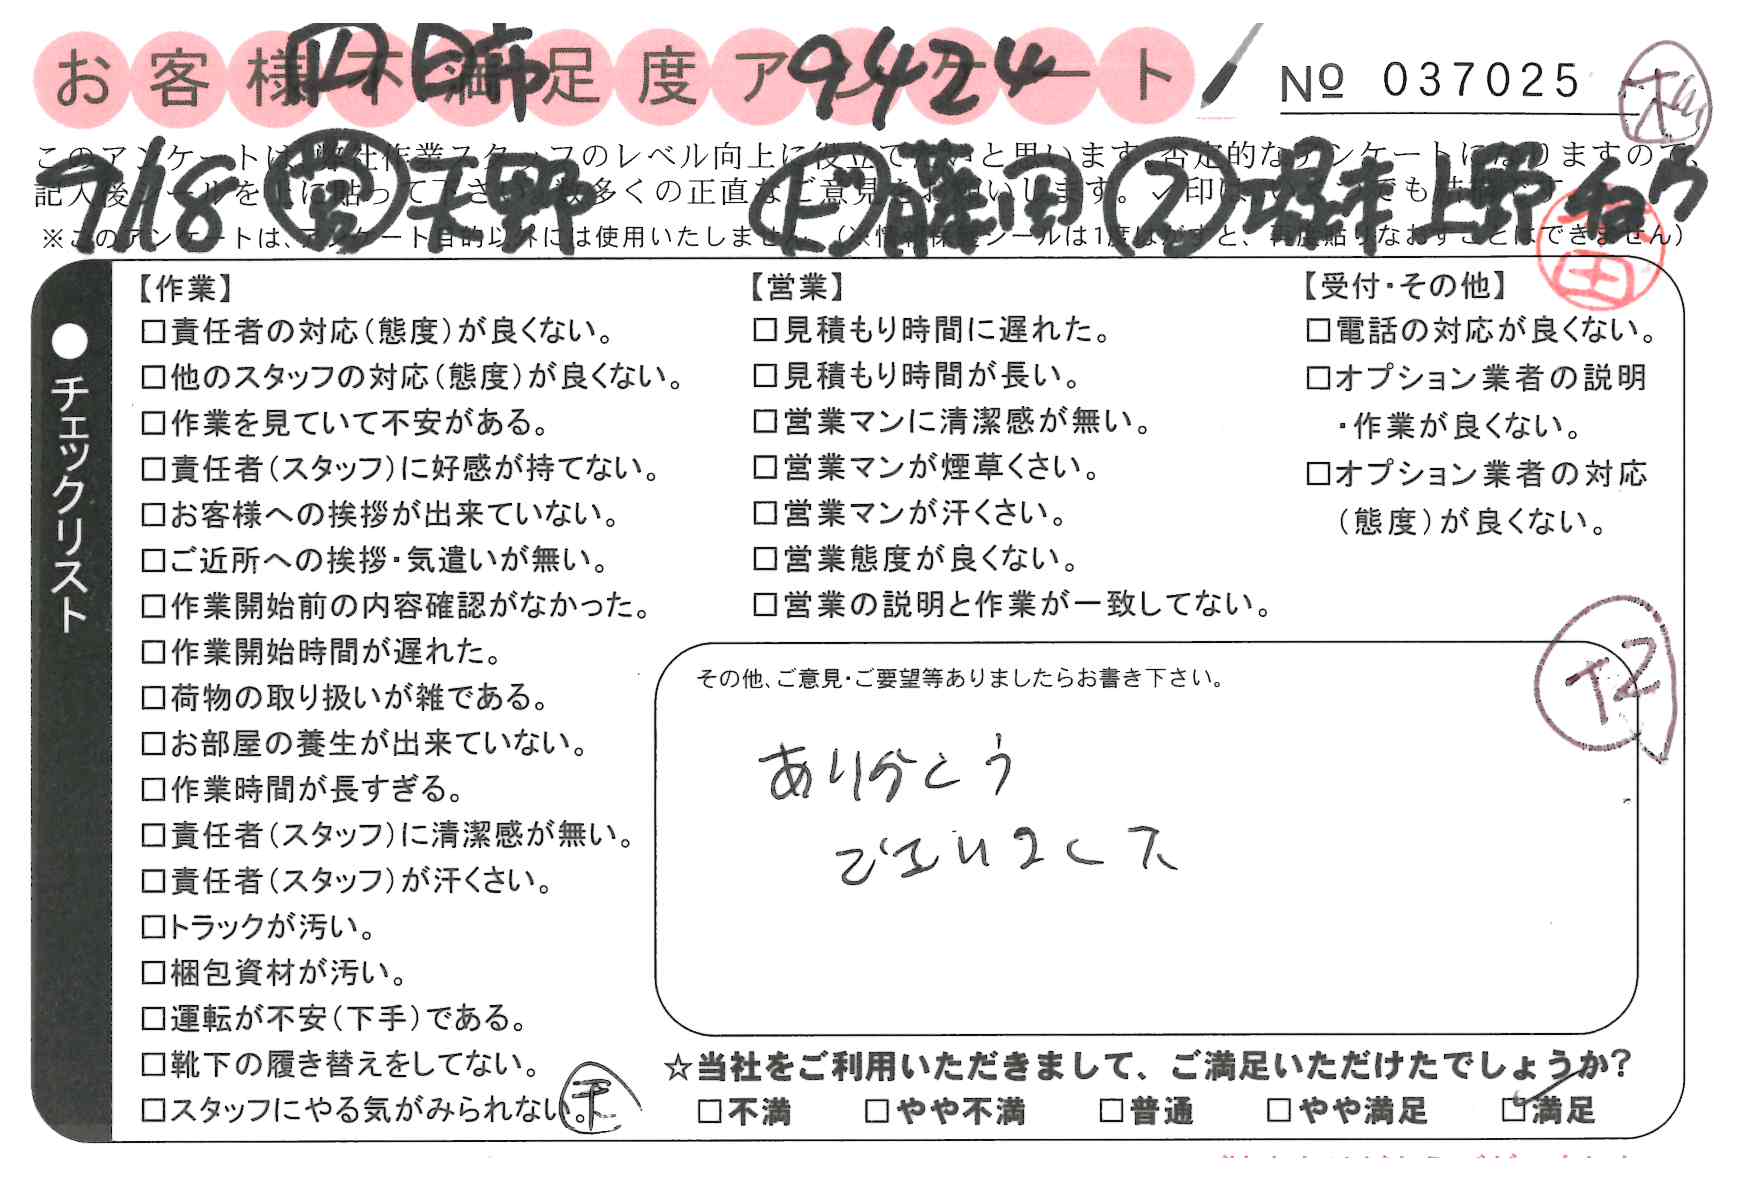 お客様不満足度アンケート
四日市 9424
№ 037025
このアンケートは、弊社作業スタッフのレベル向上に役立てたいと思います。否定的なアンケートになりますので、
記入後シールを上に貼って下さい。数多くの正直なご意見をお願いします。✓印はいくつでも結構です
9/18 営 天野 ド 藤田 ス 堀本 上野 チョウ
※このアンケートは、アンケート目的以外には使用いたしません。(※情報保護シールは1度はがすと、再度貼りなおすことはできません)
●チェックリスト
【作業】
□責任者の対応(態度)が良くない。
□他のスタッフの対応(態度)が良くない。
□作業を見ていて不安がある。
□責任者(スタッフ)に好感が持てない。
□お客様への挨拶が出来ていない。
□ご近所への挨拶・気遣いが無い。
□作業開始前の内容確認がなかった。
□作業開始時間が遅れた。
□荷物の取り扱いが雑である。
□お部屋の養生が出来ていない。
□作業時間が長すぎる。
□責任者(スタッフ)に清潔感が無い。
□責任者(スタッフ)が汗くさい。
□トラックが汚い。
□梱包資材が汚い。
□運転が不安(下手)である。
□靴下の履き替えをしてない。
□スタッフにやる気がみられない。
【営業】
□見積もり時間に遅れた。
□見積もり時間が長い。
□営業マンに清潔感が無い。
□営業マンが煙草くさい。
□営業マンが汗くさい。
□営業態度が良くない。
□営業の説明と作業が一致してない。
【受付・その他】
□電話の対応が良くない。
□オプション業者の説明
・作業が良くない。
□オプション業者の対応
(態度)が良くない。
その他、ご意見・ご要望等ありましたらお書き下さい。
ありがとう
ございました
☆当社をご利用いただきまして、ご満足いただけたでしょうか?
□不満 □やや不満 □普通 □やや満足 ☑満足